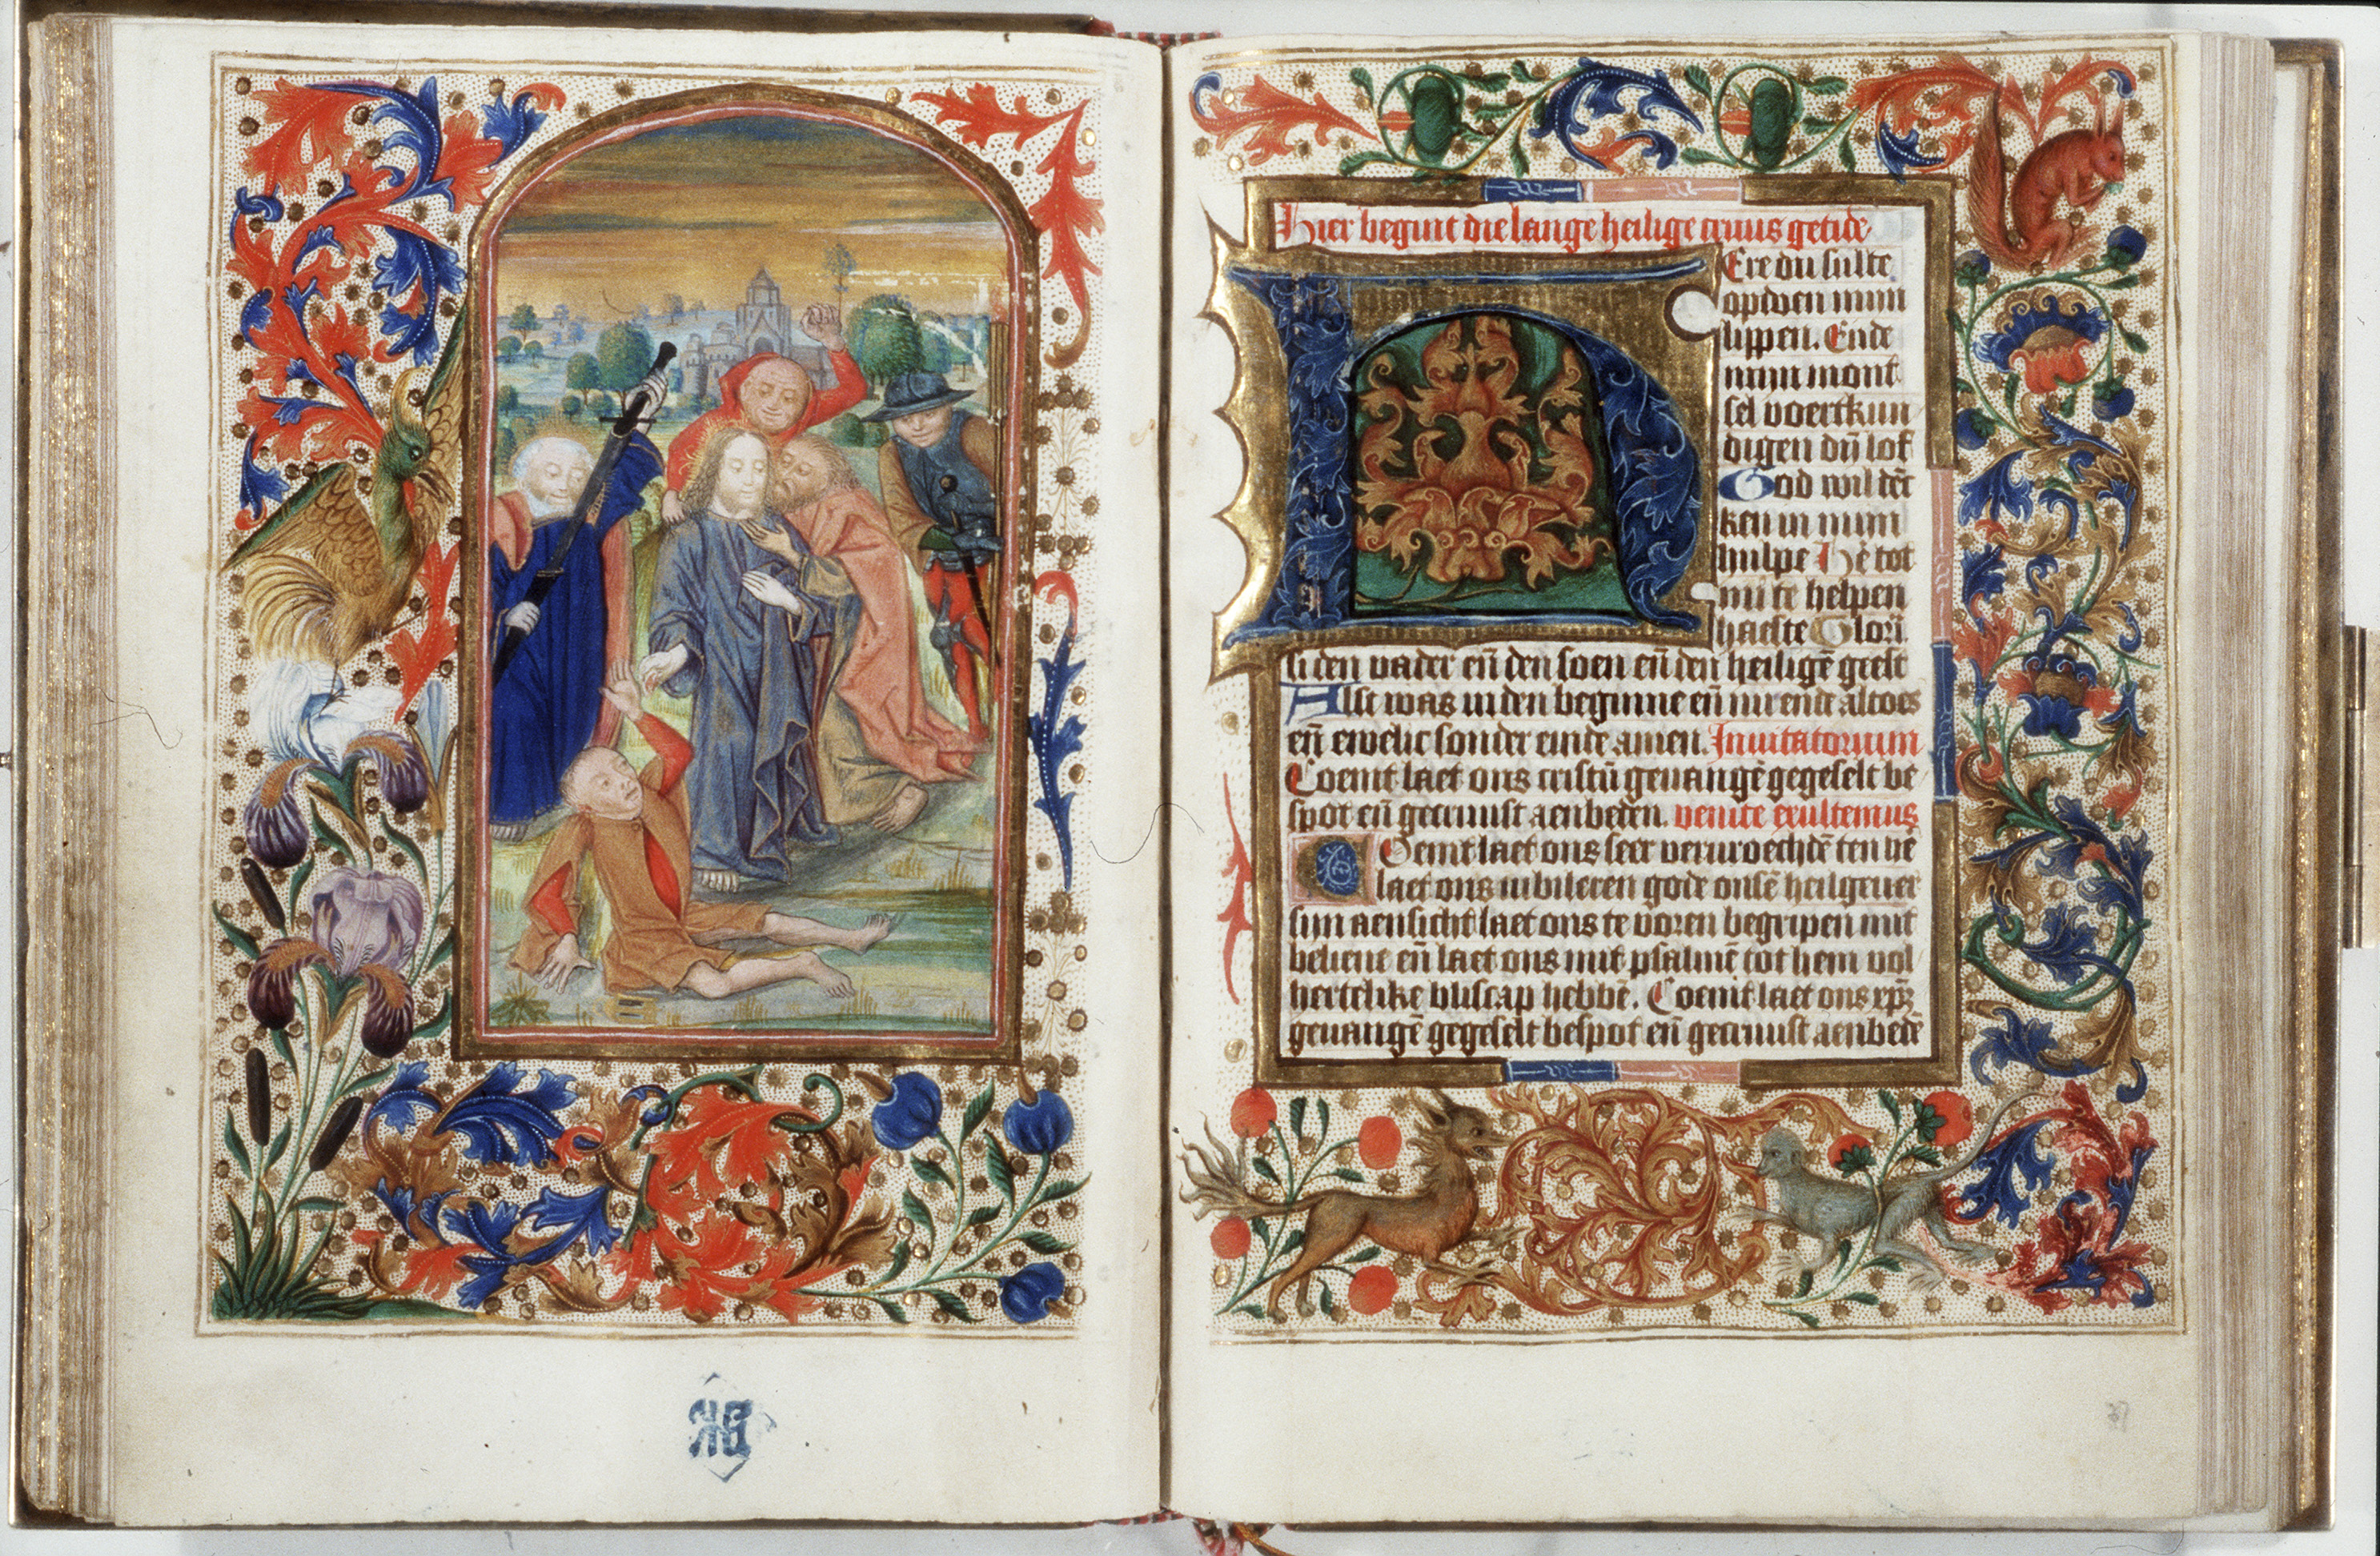 Hier begint die lange heilige cruus getide.
HEre du sulte
opdoen minn
lippen. Ende
minn mont
sel voertkun
digen dij lof
God wil dēc
ken in minn
hulpe Hē tot
mi te helpen
haeste Glori
si den vader eñ den soen eñ den heiligē geest
Alst was in den beginne eñ nu ende altoes
eñ ewelic sonder einde amen. Inuitatorium
Coemt laet ons cristū geuangē gegeselt be
spot eñ gecruust aenbeden. venite exultemus
Coemt laet ons seer vervroechdē ten he
laet ons iubileren gode onsē heilgeuer
sijn aensicht laet ons te voren begripen mit
beliene eñ laet ons mit psalmē tot hem vol
hertelike bliscap hebbē. Coemt laet ons xpm
geuangē gegeselt bespot eñ gecruust aenbedē
37
KB